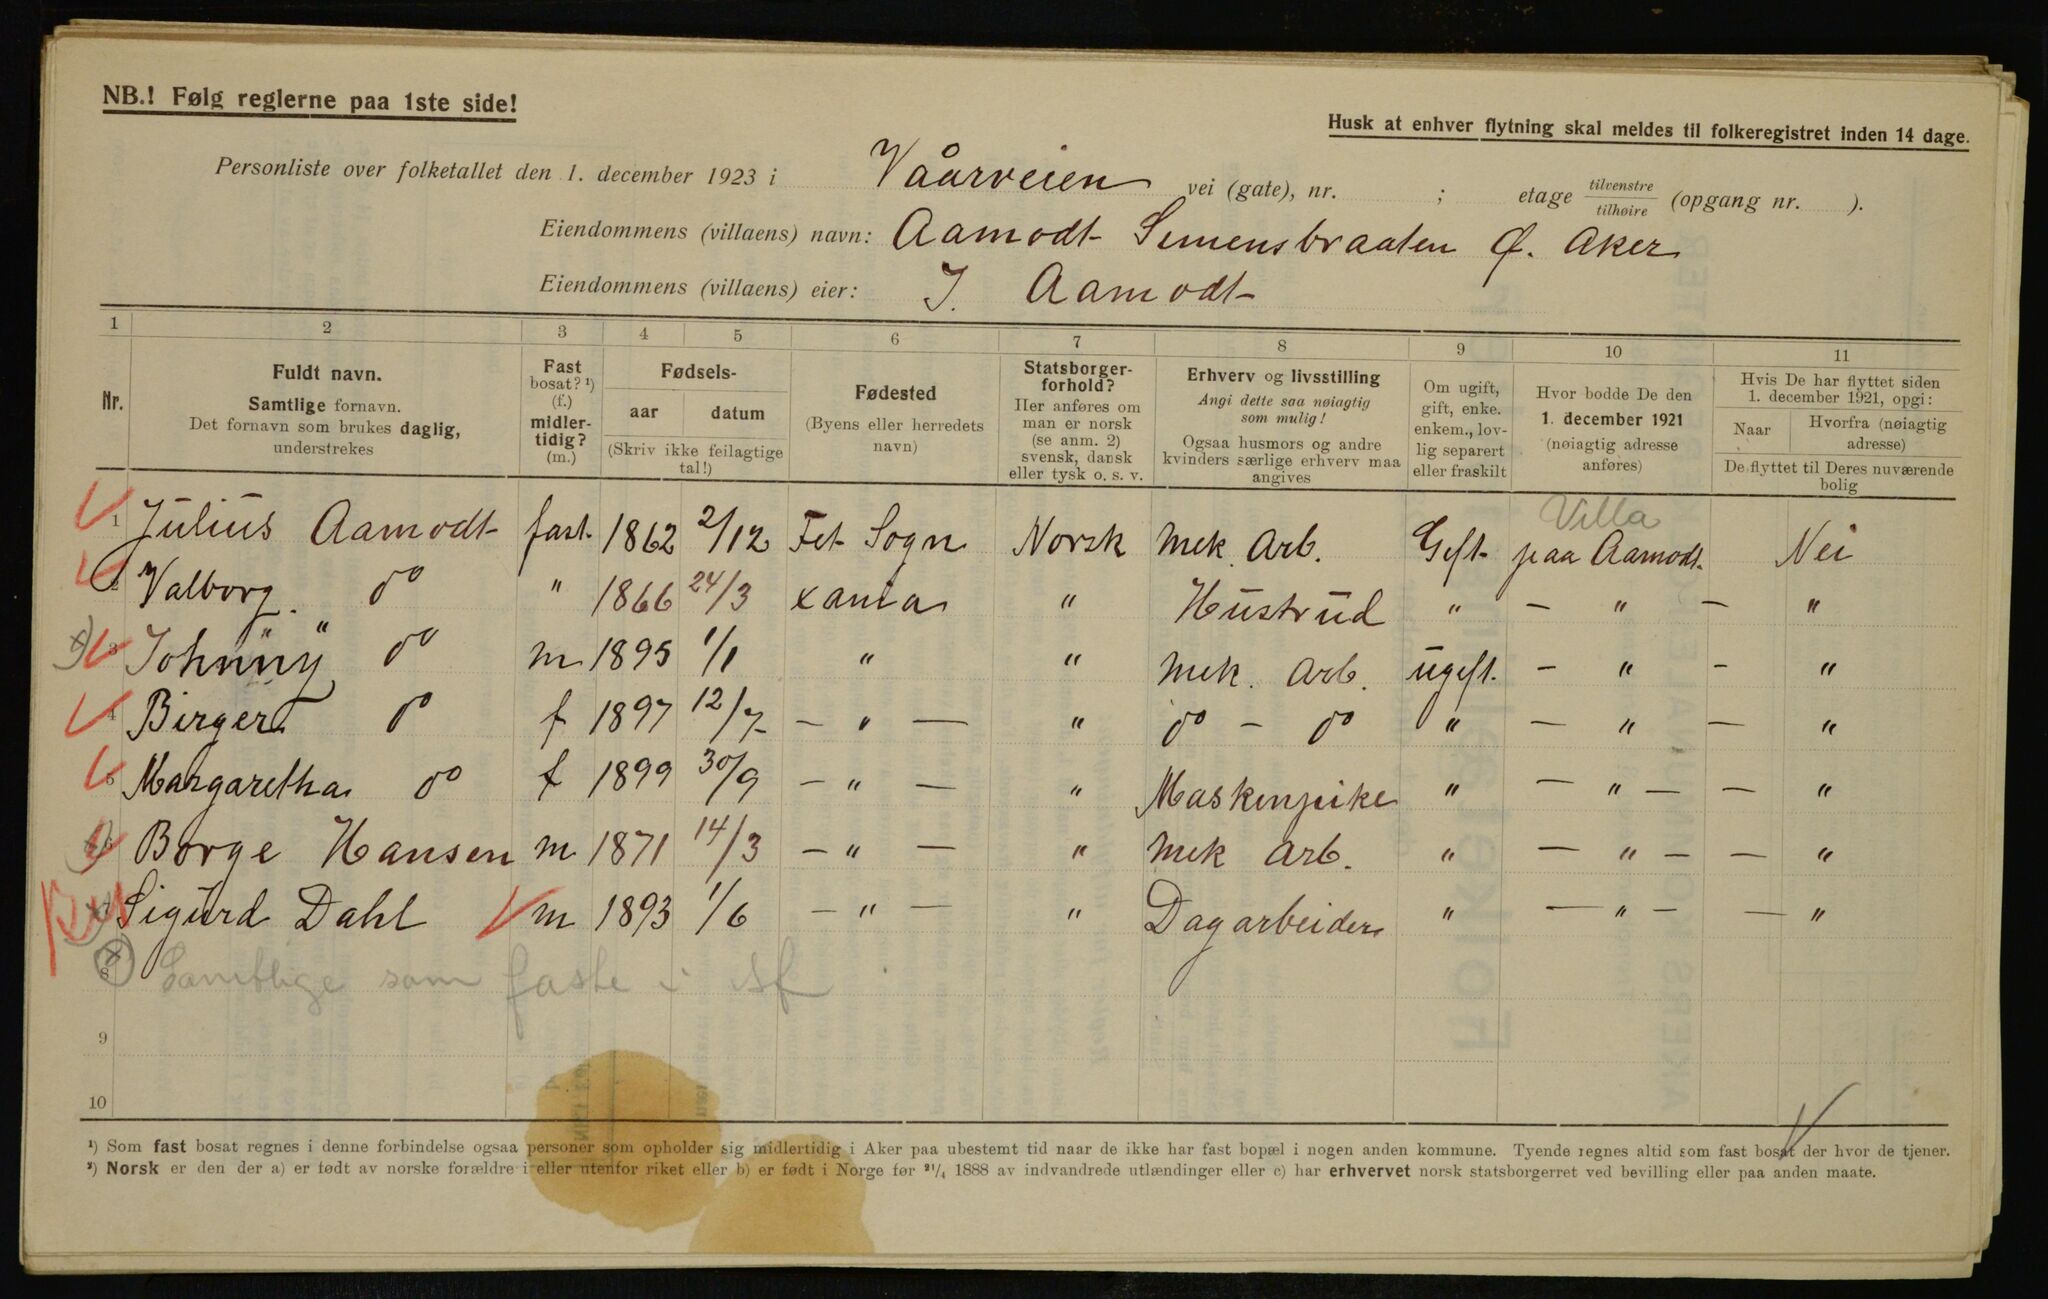 NB.! Følg reglerne paa 1ste side!
Husk at enhver flytning skal meldes til folkeregistret inden 14 dage.
Personliste over folketallet den 1. december 1923 i Våarveien vei (gate), nr. ; etage tilvenstre/tilhøire (opgang nr. ).
Eiendommens (villaens) navn: Aamodt Simensbraaten Ø. Aker
Eiendommens (villaens) eier: J. Aamodt
1 2 3 4 5 6 7 8 9 10 11
Nr.
Fuldt navn.
Samtlige fornavn.
Det fornavn som brukes daglig,
understrekes
Fast
bosat? ¹)
(f.)
midler-
tidig?
(m.)
Fødsels-
aar datum
(Skriv ikke feilagtige
tal!)
Fødested
(Byens eller herredets
navn)
Statsborger-
forhold?
Her anføres om
man er norsk
(se anm. 2)
svensk, dansk
eller tysk o. s. v.
Erhverv og livsstilling
Angi dette saa nøiagtig
som mulig!
Ogsaa husmors og andre
kvinders særlige erhverv maa
angives
Om ugift,
gift, enke.
enkem., lov-
lig separert
eller fraskilt
Hvor bodde De den
1. december 1921
(nøiagtig adresse
anføres)
Hvis De har flyttet siden
1. december 1921, opgi:
Naar
Hvorfra (nøiagtig
adresse)
De flyttet til Deres nuværende
bolig
Villa
1 Julius Aamodt fast. 1862 2/12 Fet Sogn Norsk Mek. Arb. Gift paa Aamodt. Nei
2 Valborg. do " 1866 24/3 Xania " Hustrud " — " — "
3 Johnny do m 1895 1/1 " " Mek. Arb. ugift. — " — "
4 Birger do f 1897 12/7 — " — " do — do " — " — "
5 Margaretha do f 1899 30/9 — " — " Maskenpike " — " — — "
6 Borge Hansen m 1871 14/3 — " — " Mek Arb. " — " — — "
7 Sigurd Dahl m 1893 1/6 — " — " Dagarbeider " — " — — "
8 x) Samtlige som faste i Af
9
10
¹) Som fast bosat regnes i denne forbindelse ogsaa personer som opholder sig midlertidig i Aker paa ubestemt tid naar de ikke har fast bopæl i nogen anden kommune. Tyende regnes altid som fast bosat der hvor de tjener.
²) Norsk er den der a) er født av norske forældre i eller utenfor riket eller b) er født i Norge før 21/4 1888 av indvandrede utlændinger eller c) har erhvervet norsk statsborgerret ved bevilling eller paa anden maate.